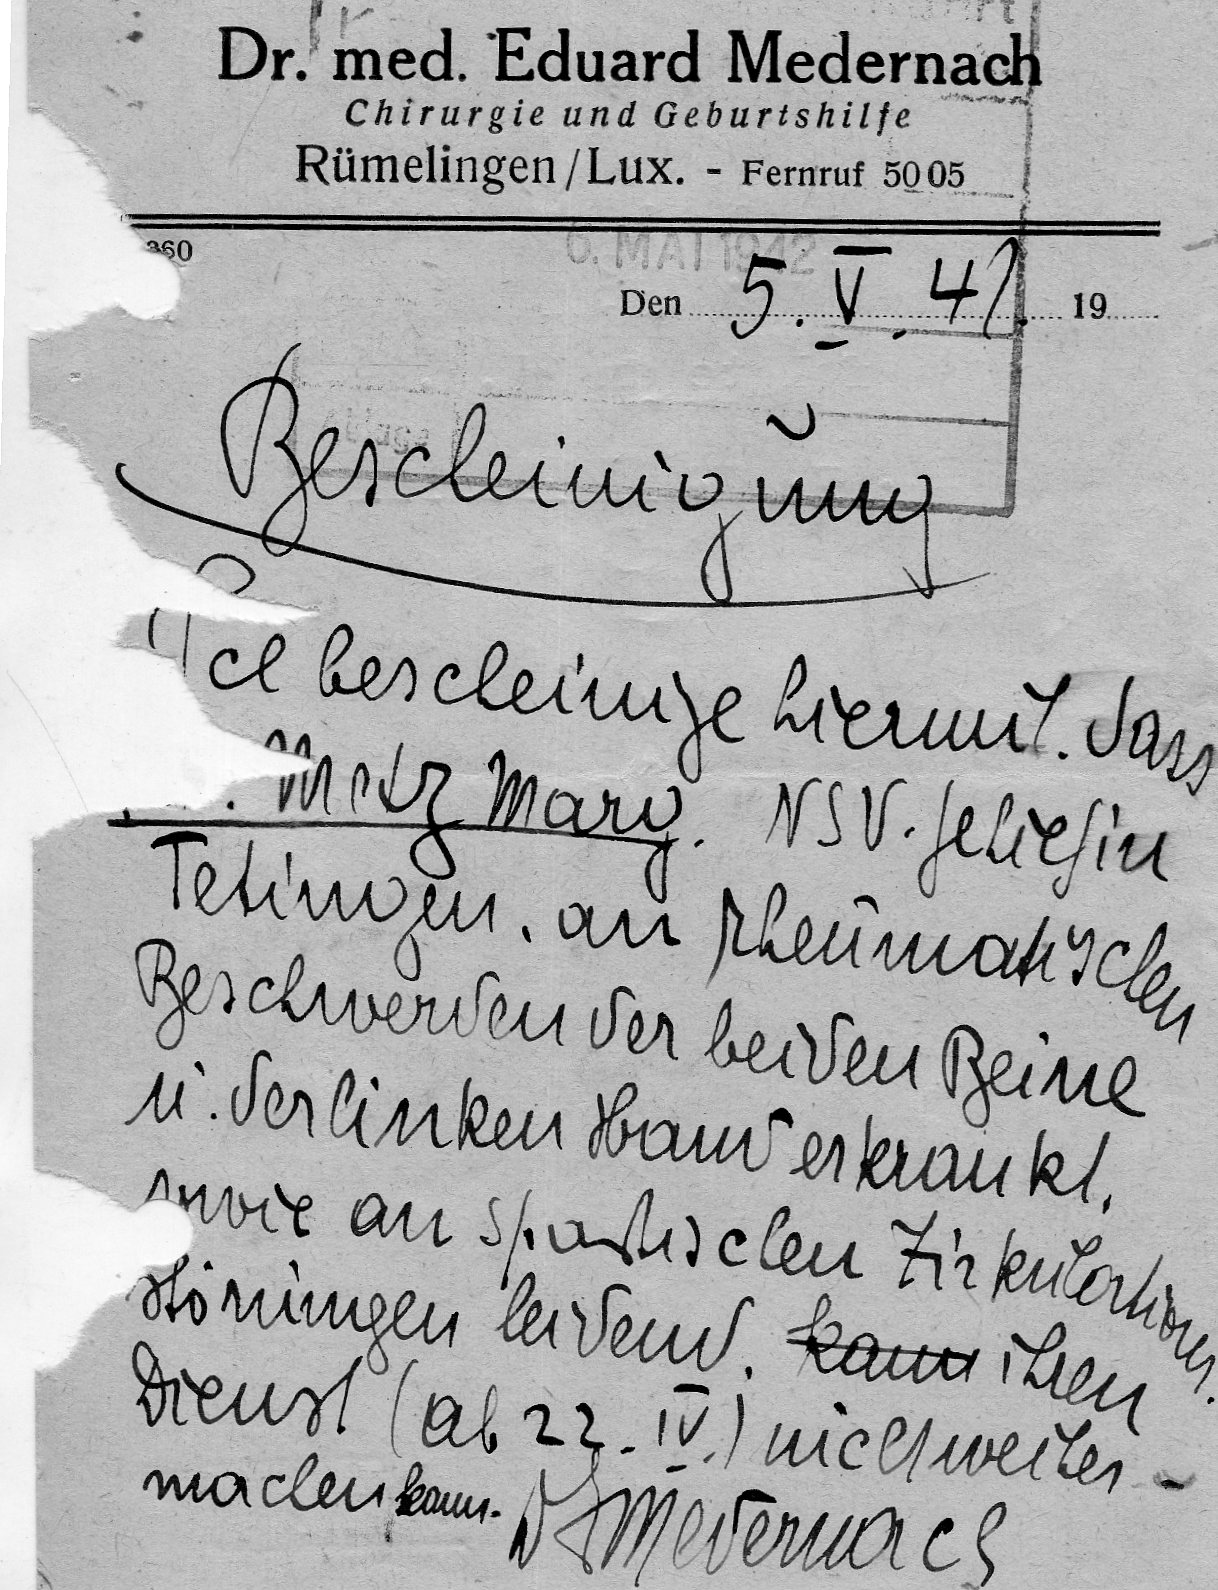 Dr. med. Eduard Medernach
Chirurgie und Geburtshilfe
Rümelingen/Lux. - Fernruf 5005
360
6. MAI 1942
Den 5. V. 42. 19
Bescheinigung
Ich bescheinige hiermit. dass
Metz Marg. NSV. gehiefin
Tetingen, an rheumatischen
Beschwerden der beiden Beine
u. der linken Hand erkrankt,
sowie an spastischen Zirkulations-
störungen leidend, kann ihren
Dienst (ab 22. IV.) nicht weiter-
machen kann.
Dr Medernach